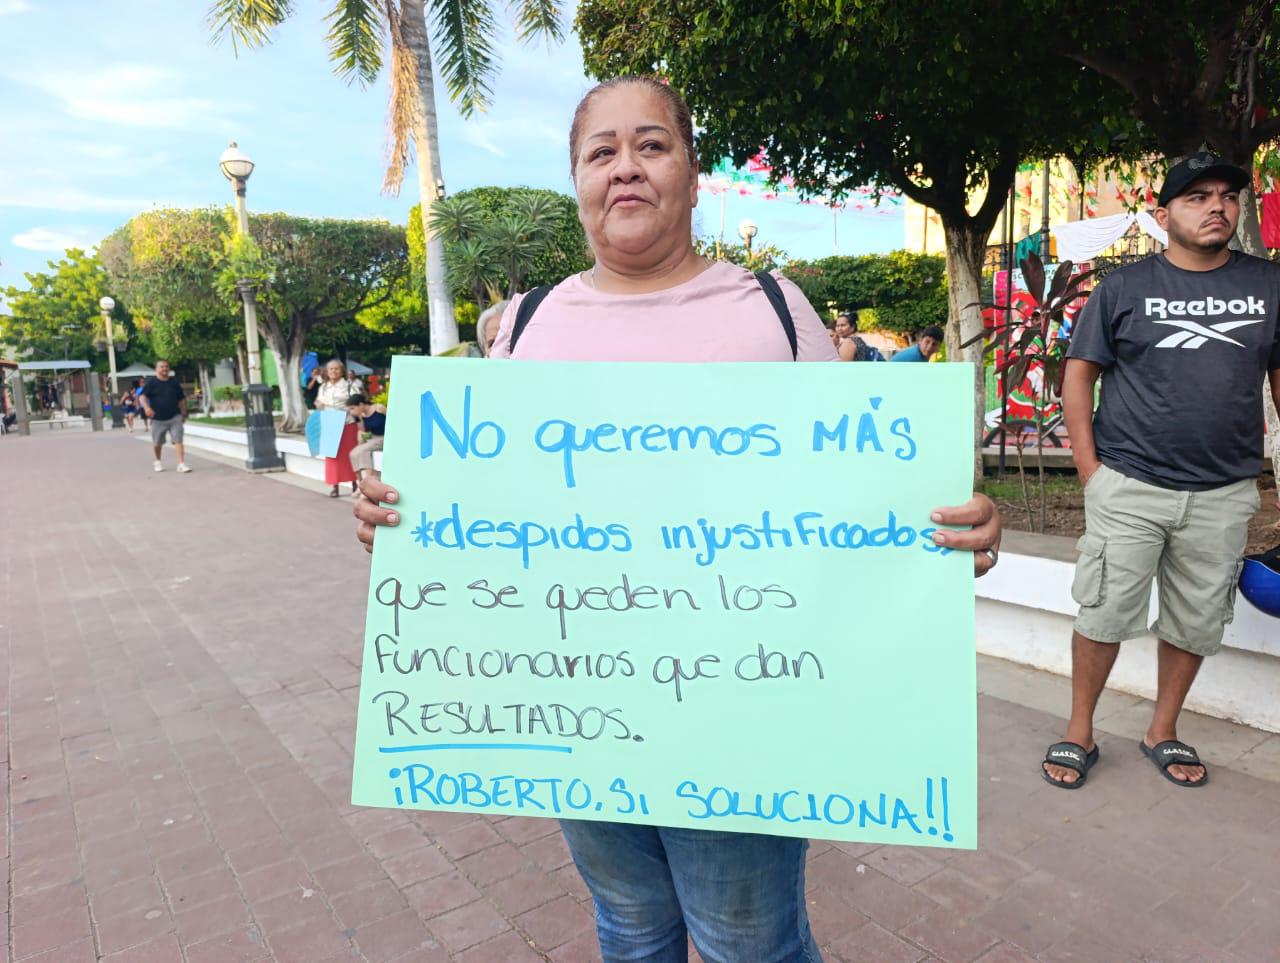 No queremos MÁS
*despidos injustificados,
que se queden los
funcionarios que dan
RESULTADOS.
¡ROBERTO, SI SOLUCIONA!!
Reebok
CLASSIC
CLASSIC